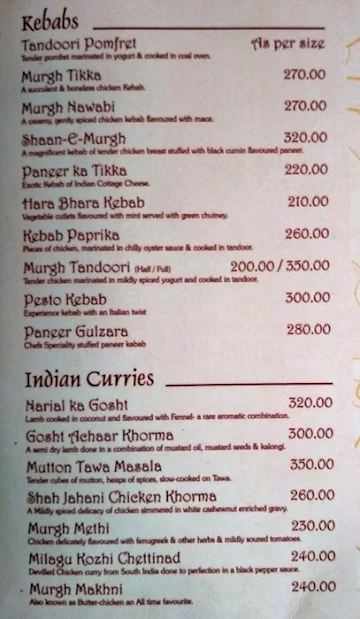 Kebabs
Tandoori Pomfret As per size
Tender pombret marinated in yogurt & cooked in coal oven.
Murgh Tikka 270.00
A succulent & boneless chicken Kebab.
Murgh Nawabi 270.00
A creamy, gently spiced chicken kebab flavoured with mace.
Shaan-E-Murgh 320.00
A magnificent kebab of tender chicken breast stuffed with black cumin flavoured paneer.
Paneer ka Tikka 220.00
Exotic Kebab of Indian Cottage Cheese.
Hara Bhara Kebab 210.00
Vegetable cutlets flavoured with mint served with green chutney.
Kebab Paprika 260.00
Pieces of chicken, marinated in chilly oyster sauce & cooked in tandoor.
Murgh Tandoori (Half / Full) 200.00 / 350.00
Tender chicken marinated in mildly spiced yogurt and cooked in tandoor.
Pesto Kebab 300.00
Experience kebab with an Italian twist
Paneer Gulzara 280.00
Chefs Speciality stuffed paneer kabab
Indian Curries
Narial ka Gosht 320.00
Lamb cooked in coconut and flavoured with Fennel- a rare aromatic combination.
Gosht Achaar Khorma 300.00
A semi dry lamb done in a combination of mustard oil, mustard seeds & kalongi.
Mutton Tawa Masala 350.00
Tender cubes of mutton, heaps of spices, slow-cooked on Tawa.
Shah Jahani Chicken Khorma 260.00
A Mildly spiced delicacy of chicken simmered in white cashewnut enriched gravy.
Murgh Methi 230.00
Chicken delicately flavoured with fenugreek & other herbs & mildly soured tomatoes.
Milagu Kozhi Chettinad 240.00
Devilled Chicken curry from South India done to perfection in a black pepper sauce.
Murgh Makhni 240.00
Also known as Butter-chicken an All time favourite.